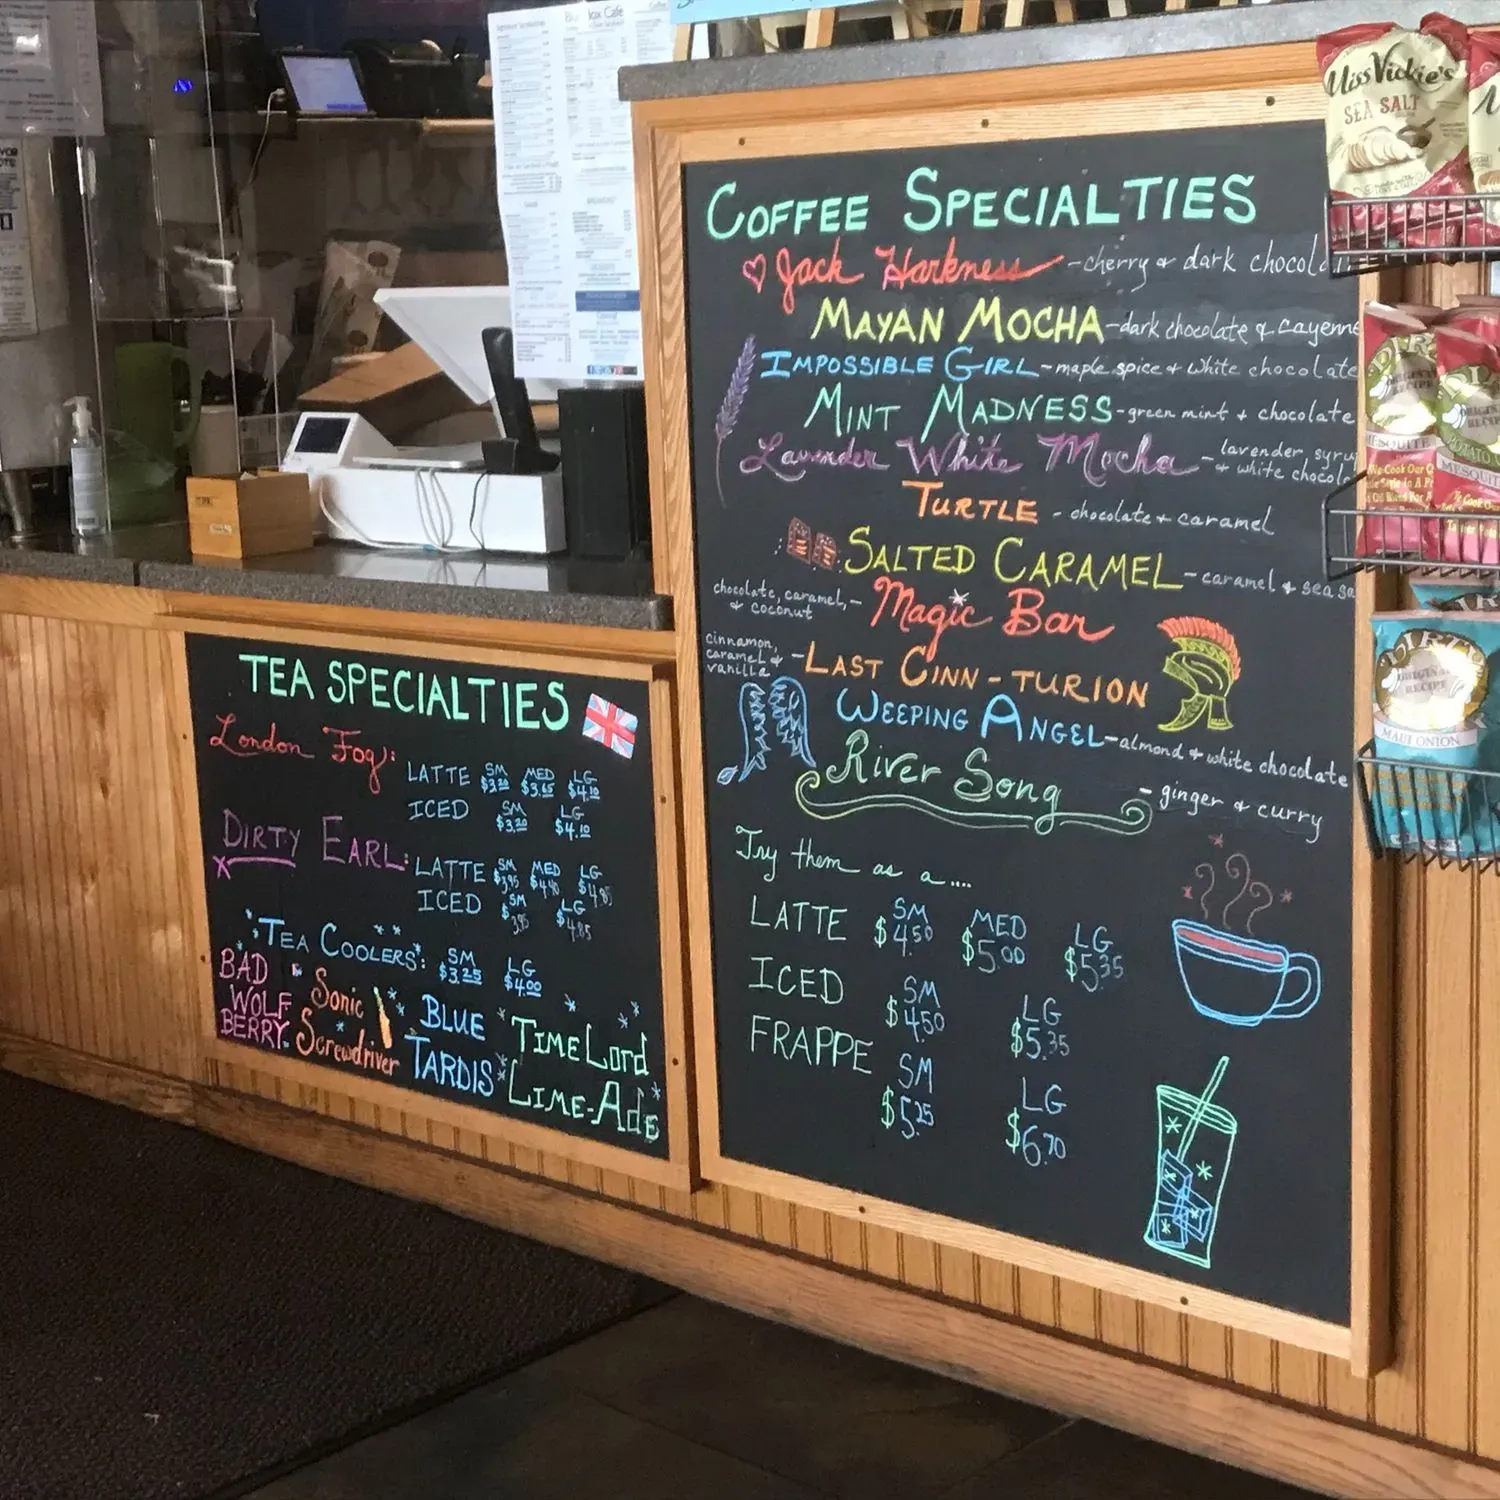 COFFEE SPECIALTIES
Jack Harkness - cherry & dark chocol
MAYAN MOCHA - dark chocolate & cayenne
IMPOSSIBLE GIRL - maple spice & white chocolate
MINT MADNESS - green mint & chocolate
Lavender White Mocha - lavender syru
& white chocol
TURTLE - chocolate & caramel
SALTED CARAMEL - caramel & sea sa
chocolate, caramel, - Magic Bar
& coconut
cinnamon,
caramel & - LAST CINN-TURION
vanilla
WEEPING ANGEL - almond & white chocolate
River Song - ginger & curry
Try them as a....
LATTE SM $4.50 MED $5.00 LG $5.35
ICED SM $4.50 LG $5.35
FRAPPE SM $5.25 LG $6.70
TEA SPECIALTIES
London Fog:
LATTE SM $3.20 MED $3.65 LG $4.10
ICED SM $3.20 LG $4.10
DIRTY EARL:
LATTE SM $3.95 MED $4.40 LG $4.85
ICED SM $3.95 LG $4.85
TEA COOLERS: SM $3.25 LG $4.00
BAD
WOLF
BERRY
Sonic
Screwdriver
BLUE
TARDIS
TIME LORD
LIME-ADE
Miss Vickie's
SEA SALT
ORIGINAL
RECIPE
MESQUITE
MESQUIT
DIRTY
ORIGINAL
RECIPE
MAUI ONION
Cafe